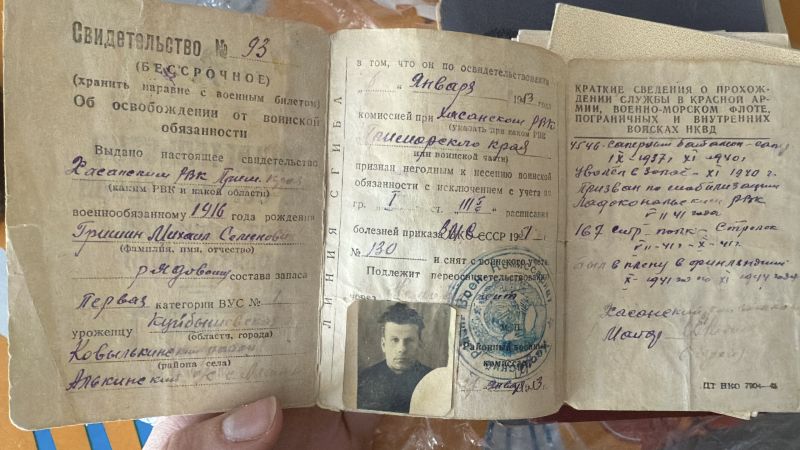 Свидетельство № 93
(БЕССРОЧНОЕ)
(хранить наравне с военным билетом)
Об освобождении от воинской
обязанности
Выдано настоящее свидетельство
Хасанским РВК Прим. Края
(каким РВК и какой области)
военнообязанному 1916 года рождения
Гришин Михаил Семенович
(фамилия, имя, отчество)
рядовому состава запаса
Первая категории ВУС № 1
уроженцу Куйбышевская
(области, города)
Ковылкинский
(района села)
ЛИНИЯ СГИБА
в том, что он по освидетельствованию
" " Января 19 3 года
комиссией при Хасанском РВК
(указать при каком РВК
Приморского края
или воинской части)
признан негодным к несению воинской
обязанности с исключением с учета по
гр. I ст. III расписания
болезней приказа СССР 1951 г.
№ 130 и снят с воинского учета
Подлежит переосвидетельствованию
через
М.П.
Районный военный
комиссар
января
КРАТКИЕ СВЕДЕНИЯ О ПРОХОЖ-
ДЕНИИ СЛУЖБЫ В КРАСНОЙ АР-
МИИ, ВОЕННО-МОРСКОМ ФЛОТЕ,
ПОГРАНИЧНЫХ И ВНУТРЕННИХ
ВОЙСКАХ НКВД
саперный батальон
IX-1937г XI 1940г
Уволен в запас - XI 1940 г
Призван по мобилизации
РВК
VII 41 года
167 стр. полк - Стрелок
VII-41г - X-41г
был в плену в финляндии
X 1941 по XI 1944 года
Хасанский
Майор
ЦТ НКО